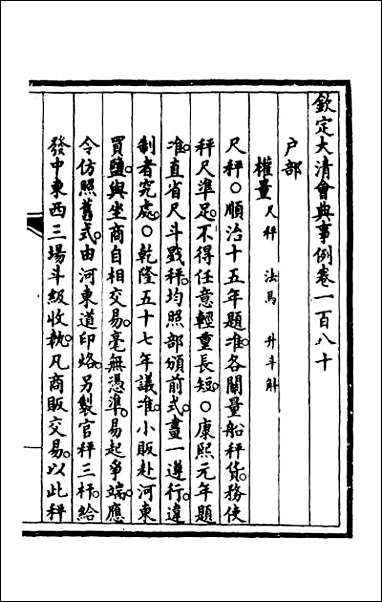 欽定大清會典事例卷一百八十
戶部
權量尺秤 法馬 升斗斛
尺秤○順治十五年題准各關量船秤貨務使
秤尺準足不得任意輕重長短○康熙元年題
准直省尺斗戥秤均照部頒前式畫一遵行違
制者究處○乾隆五十七年議准小販赴河東
買鹽與坐商自相交易毫無憑準易起爭端應
令仿照舊式由河東道印烙另製官秤三杆給
發中東西三場斗級收執凡商販交易以此秤